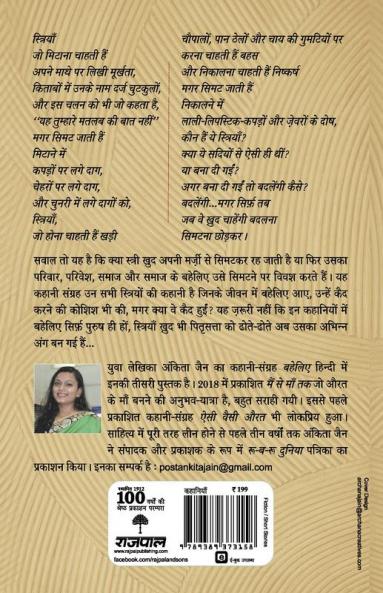 स्त्रियाँ
जो मिटाना चाहती हैं
अपने माथे पर लिखी मूर्खता,
किताबों में उनके नाम दर्ज चुटकुलों,
और इस चलन को भी जो कहता है,
“यह तुम्हारे मतलब की बात नहीं”
मगर सिमट जाती हैं
मिटाने में
कपड़ों पर लगे दाग,
चेहरों पर लगे दाग,
और चुनरी में लगे दागों को,
स्त्रियाँ,
जो होना चाहती हैं खड़ी
चौपालों, पान ठेलों और चाय की गुमटियों पर
करना चाहती हैं बहस
और निकालना चाहती हैं निष्कर्ष
मगर सिमट जाती हैं
निकालने में
लाली-लिपस्टिक-कपड़ों और ज़ेवरों के दोष,
कौन हैं ये स्त्रियाँ?
क्या ये सदियों से ऐसी ही थीं?
या बना दी गईं?
अगर बना दी गईं तो बदलेंगी कैसे?
बदलेंगी...मगर सिर्फ़ तब
जब वे ख़ुद चाहेंगी बदलना
सिमटना छोड़कर।
सवाल तो यह है कि क्या स्त्री ख़ुद अपनी मर्ज़ी से सिमटकर रह जाती है या फिर उसका
परिवार, परिवेश, समाज और समाज के बहेलिए उसे सिमटने पर विवश करते हैं। यह
कहानी संग्रह उन सभी स्त्रियों की कहानी है जिनके जीवन में बहेलिए आए, उन्हें कैद
करने की कोशिश भी की, मगर क्या वे कैद हुईं? यह ज़रूरी नहीं कि इन कहानियों में
बहेलिए सिर्फ़ पुरुष ही हों, स्त्रियाँ ख़ुद भी पितृसत्ता को ढोते-ढोते अब उसका अभिन्न
अंग बन गई हैं...
युवा लेखिका अंकिता जैन का कहानी-संग्रह बहेलिए हिन्दी में
इनकी तीसरी पुस्तक है। 2018 में प्रकाशित मैं से माँ तक जो औरत
के माँ बनने की अनुभव-यात्रा है, बहुत सराही गयी। इससे पहले
प्रकाशित कहानी-संग्रह ऐसी वैसी औरत भी लोकप्रिय हुआ।
साहित्य में पूरी तरह लीन होने से पहले तीन वर्षों तक अंकिता जैन
ने संपादक और प्रकाशक के रूप में रू-ब-रू दुनिया पत्रिका का
प्रकाशन किया। इनका सम्पर्क है : postankitajain@gmail.com
स्थापित 1912
100 वर्षों की
श्रेष्ठ प्रकाशन परम्परा
राजपाल
www.rajpalpublishing.com
facebook.com/rajpalandsons
कहानियाँ
₹ 199
9 789389 373158
ई-बुक उपलब्ध
Fiction / Short Stories
Cover Design